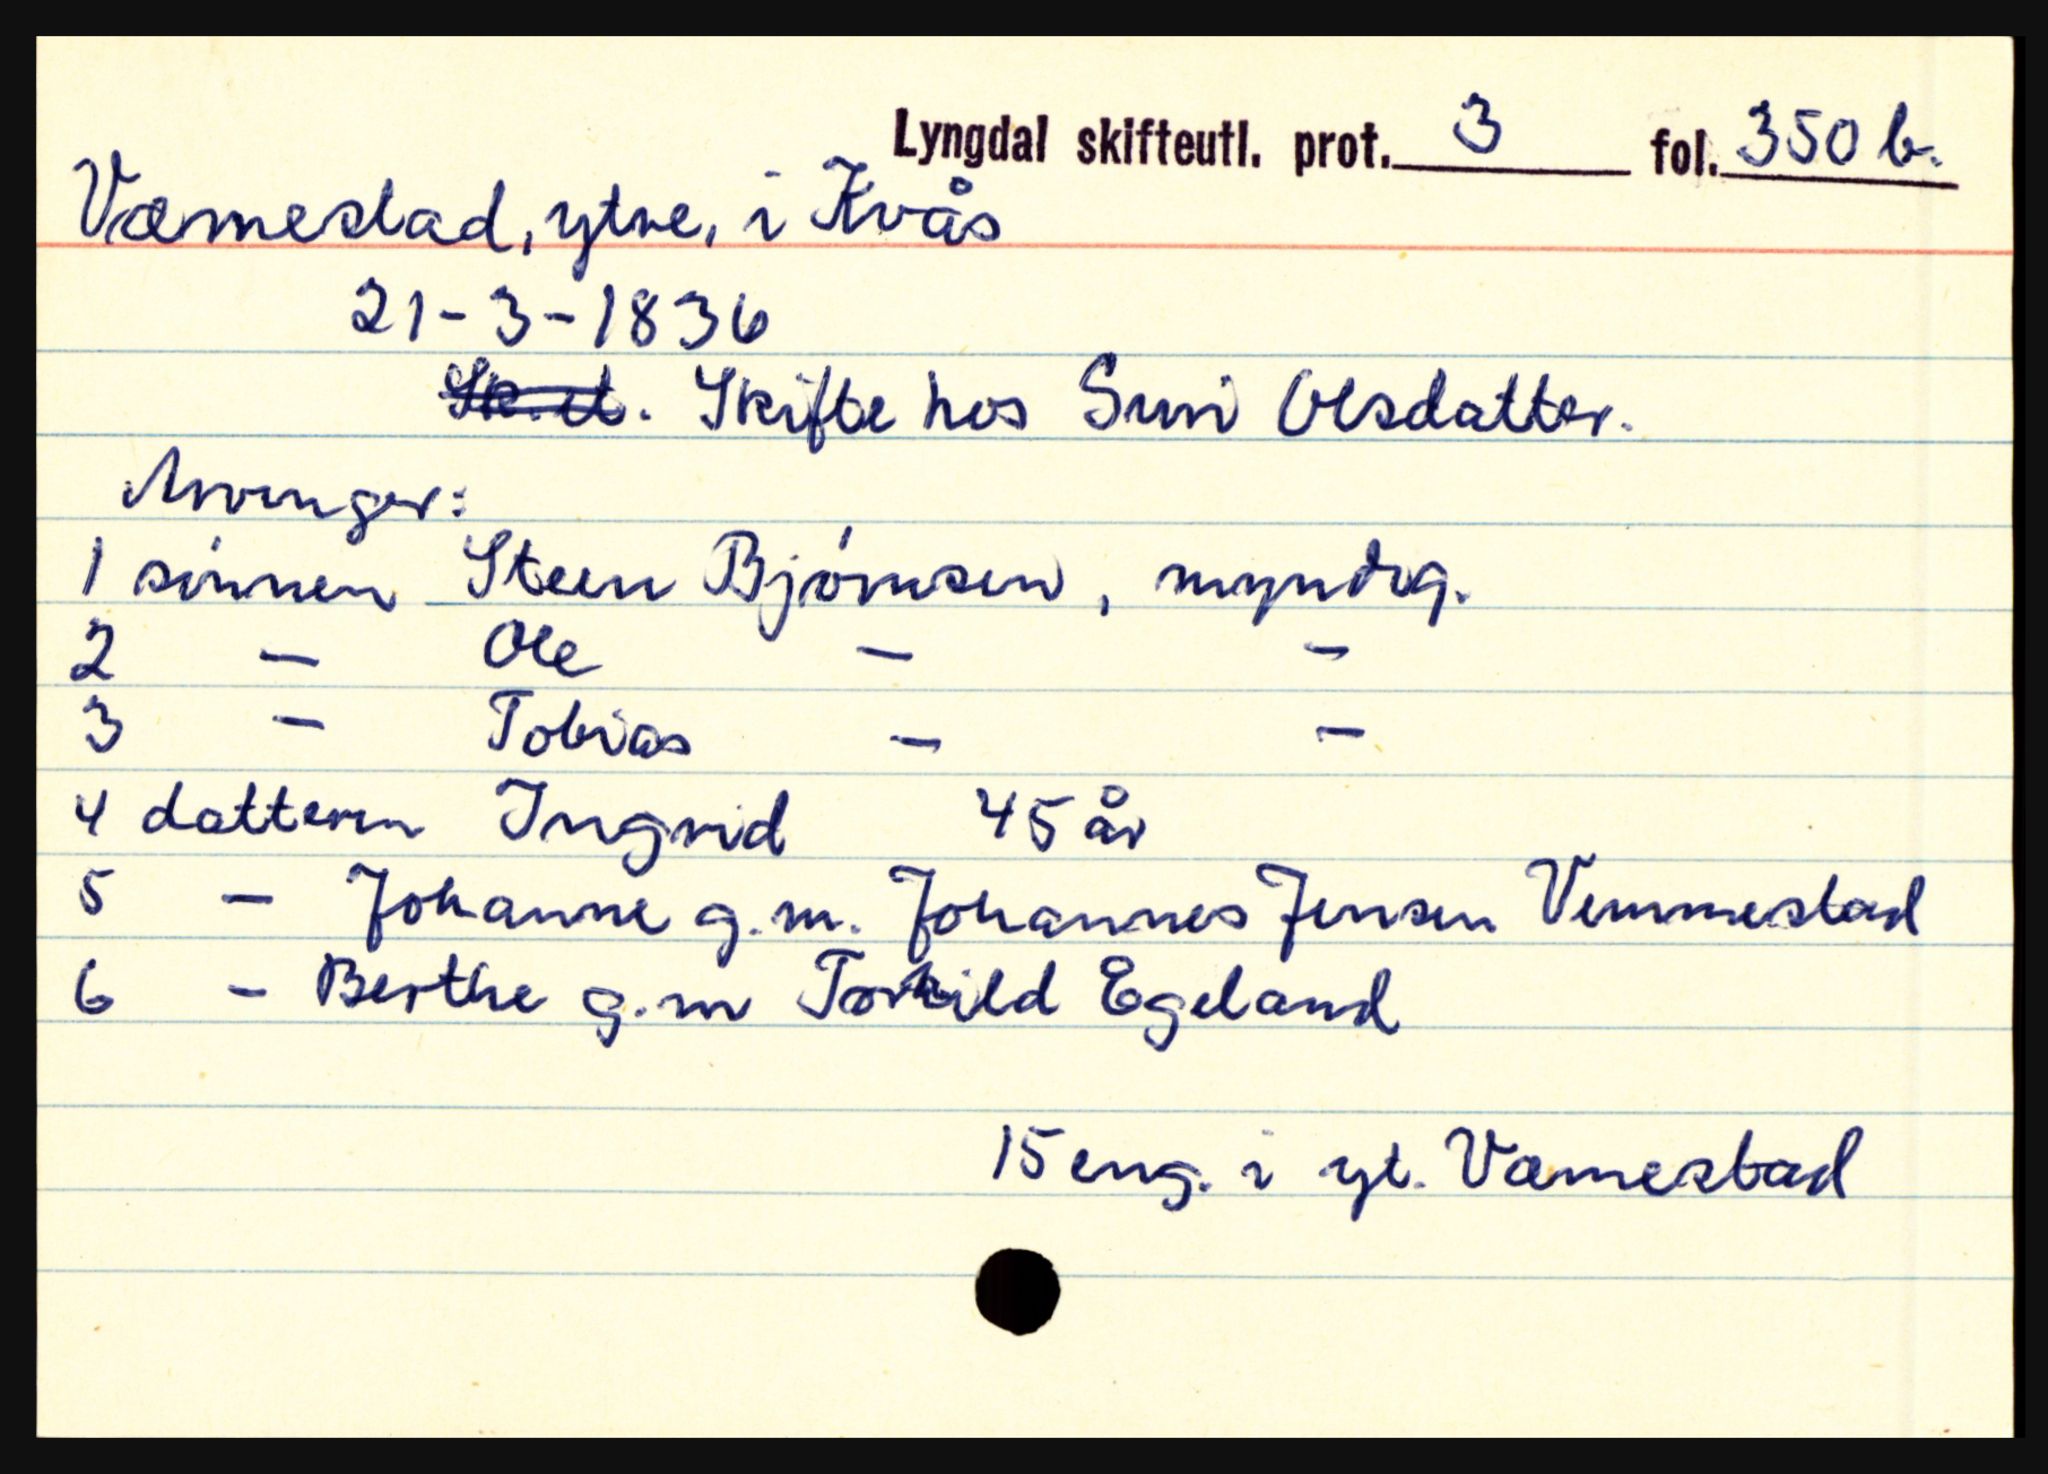 Lyngdal skifteutl. prot. 3 fol. 350 b.
Væmestad, ytre, i Kvås
21-3-1836
Sk. et. Skifte hos Suni Olsdatter.
Arvinger:
1 sønnen Steen Bjørnsen, myndig.
2 - Ole - -
3 - Tobias - -
4 datteren Ingrid 45 år
5 - Johanne g.m. Johannes Jensen Vemmestad
6 - Berthe g.m Torkild Egeland
15 eng. i yt. Væmestad